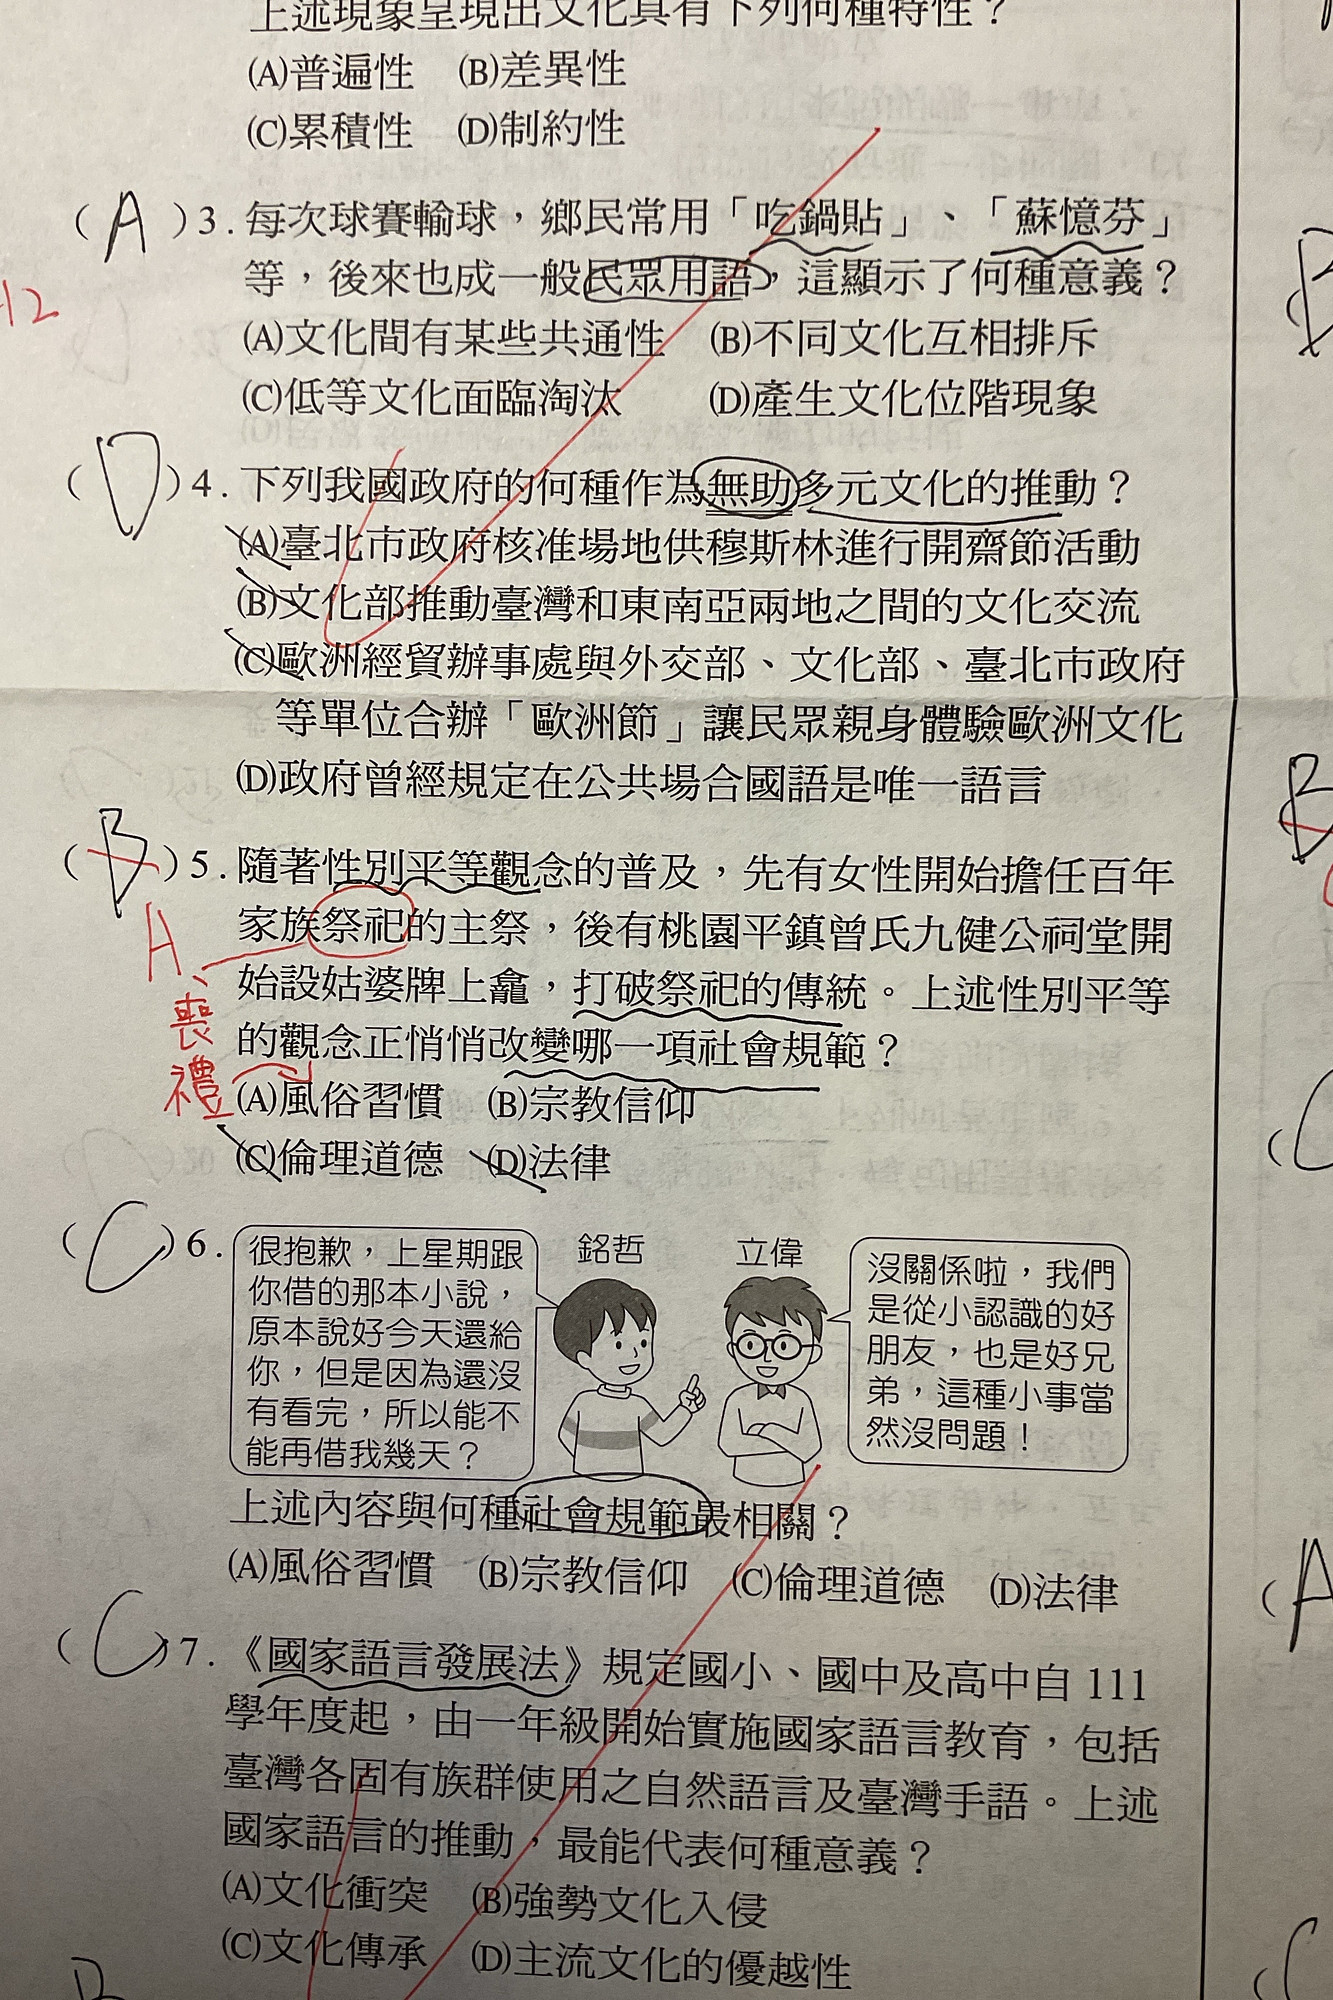 上述現象呈現出文化具有下列何種特性？
(A)普遍性 (B)差異性
(C)累積性 (D)制約性
( A )3.每次球賽輸球，鄉民常用「吃鍋貼」、「蘇憶芬」
等，後來也成一般民眾用語，這顯示了何種意義？
-12
(A)文化間有某些共通性 (B)不同文化互相排斥
(C)低等文化面臨淘汰 (D)產生文化位階現象
( D )4.下列我國政府的何種作為無助多元文化的推動？
(A)臺北市政府核准場地供穆斯林進行開齋節活動
(B)文化部推動臺灣和東南亞兩地之間的文化交流
(C)歐洲經貿辦事處與外交部、文化部、臺北市政府
等單位合辦「歐洲節」讓民眾親身體驗歐洲文化
(D)政府曾經規定在公共場合國語是唯一語言
( B )5.隨著性別平等觀念的普及，先有女性開始擔任百年
家族祭祀的主祭，後有桃園平鎮曾氏九健公祠堂開
A、
始設姑婆牌上龕，打破祭祀的傳統。上述性別平等
喪
的觀念正悄悄改變哪一項社會規範？
禮
(A)風俗習慣 (B)宗教信仰
(C)倫理道德 (D)法律
( C )6.
很抱歉，上星期跟
你借的那本小說，
原本說好今天還給
你，但是因為還沒
有看完，所以能不
能再借我幾天？
銘哲
立偉
沒關係啦，我們
是從小認識的好
朋友，也是好兄
弟，這種小事當
然沒問題！
上述內容與何種社會規範最相關？
(A)風俗習慣 (B)宗教信仰 (C)倫理道德 (D)法律
( C )7.《國家語言發展法》規定國小、國中及高中自 111
學年度起，由一年級開始實施國家語言教育，包括
臺灣各固有族群使用之自然語言及臺灣手語。上述
國家語言的推動，最能代表何種意義？
(A)文化衝突 (B)強勢文化入侵
(C)文化傳承 (D)主流文化的優越性
B
(B
(C
(A
(C